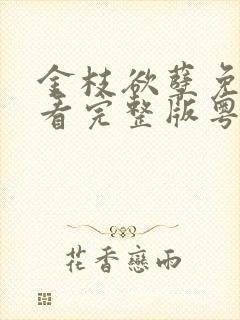 金枝欲孽免
看完整版粤
花香恋雨